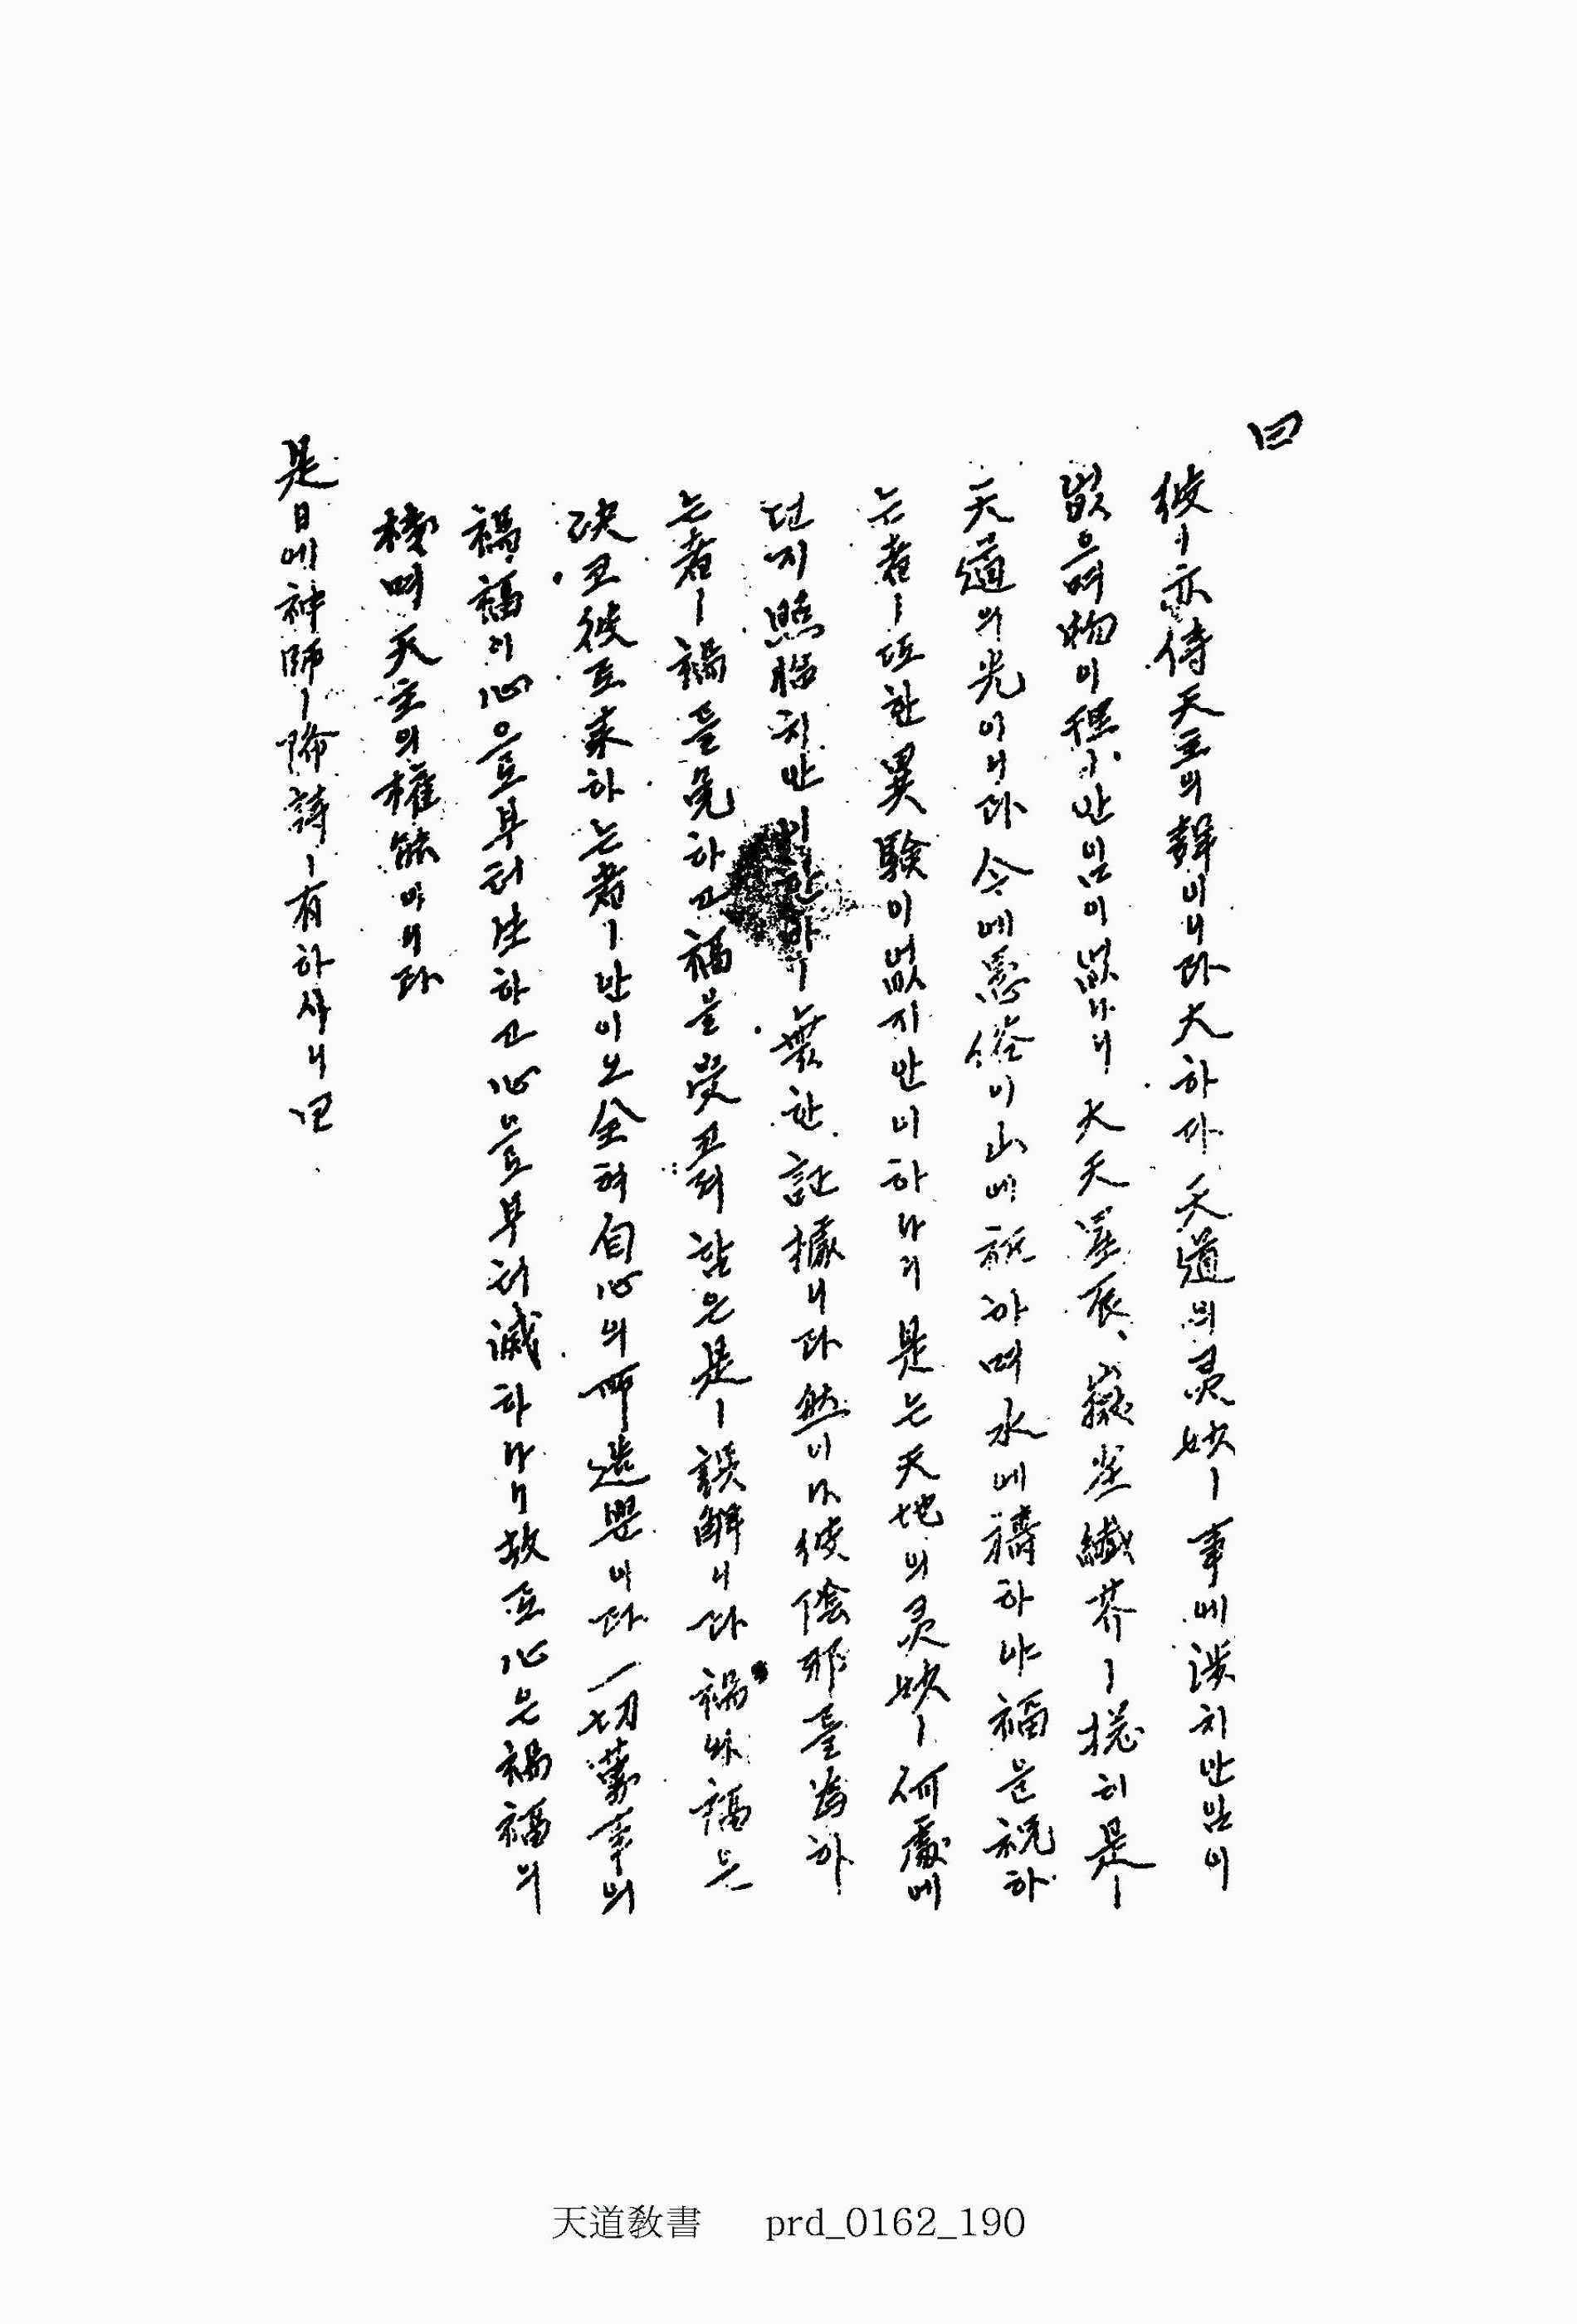 曰
彼ㅣ亦侍天主의聲이니라大하다天道의灵妙ㅣ事에涉치안임이
없으며物이在치안임이없나니大天星辰、嶽坐纖芥ㅣ總히是ㅣ
天道의光이니라今에愚俗이山에祈하며水에禱하야福을祝하
는者ㅣ또한異驗이없지안이하나니是는天地의灵妙ㅣ何處에
던지照臨치안 無한證據니라然이나彼陰邪를爲하
는者ㅣ禍를免하고福을受코저함은是ㅣ誤解니라禍와福은
決코彼로來하는者ㅣ안이오全혀自心의所造뿐이다一切萬事의
禍、福이心으로부터生하고心으로부터滅하나니故로心은禍福의
機며天主의權能이니라
是日에神師ㅣ降詩ㅣ有하사니曰
天道敎書 prd_0162_190